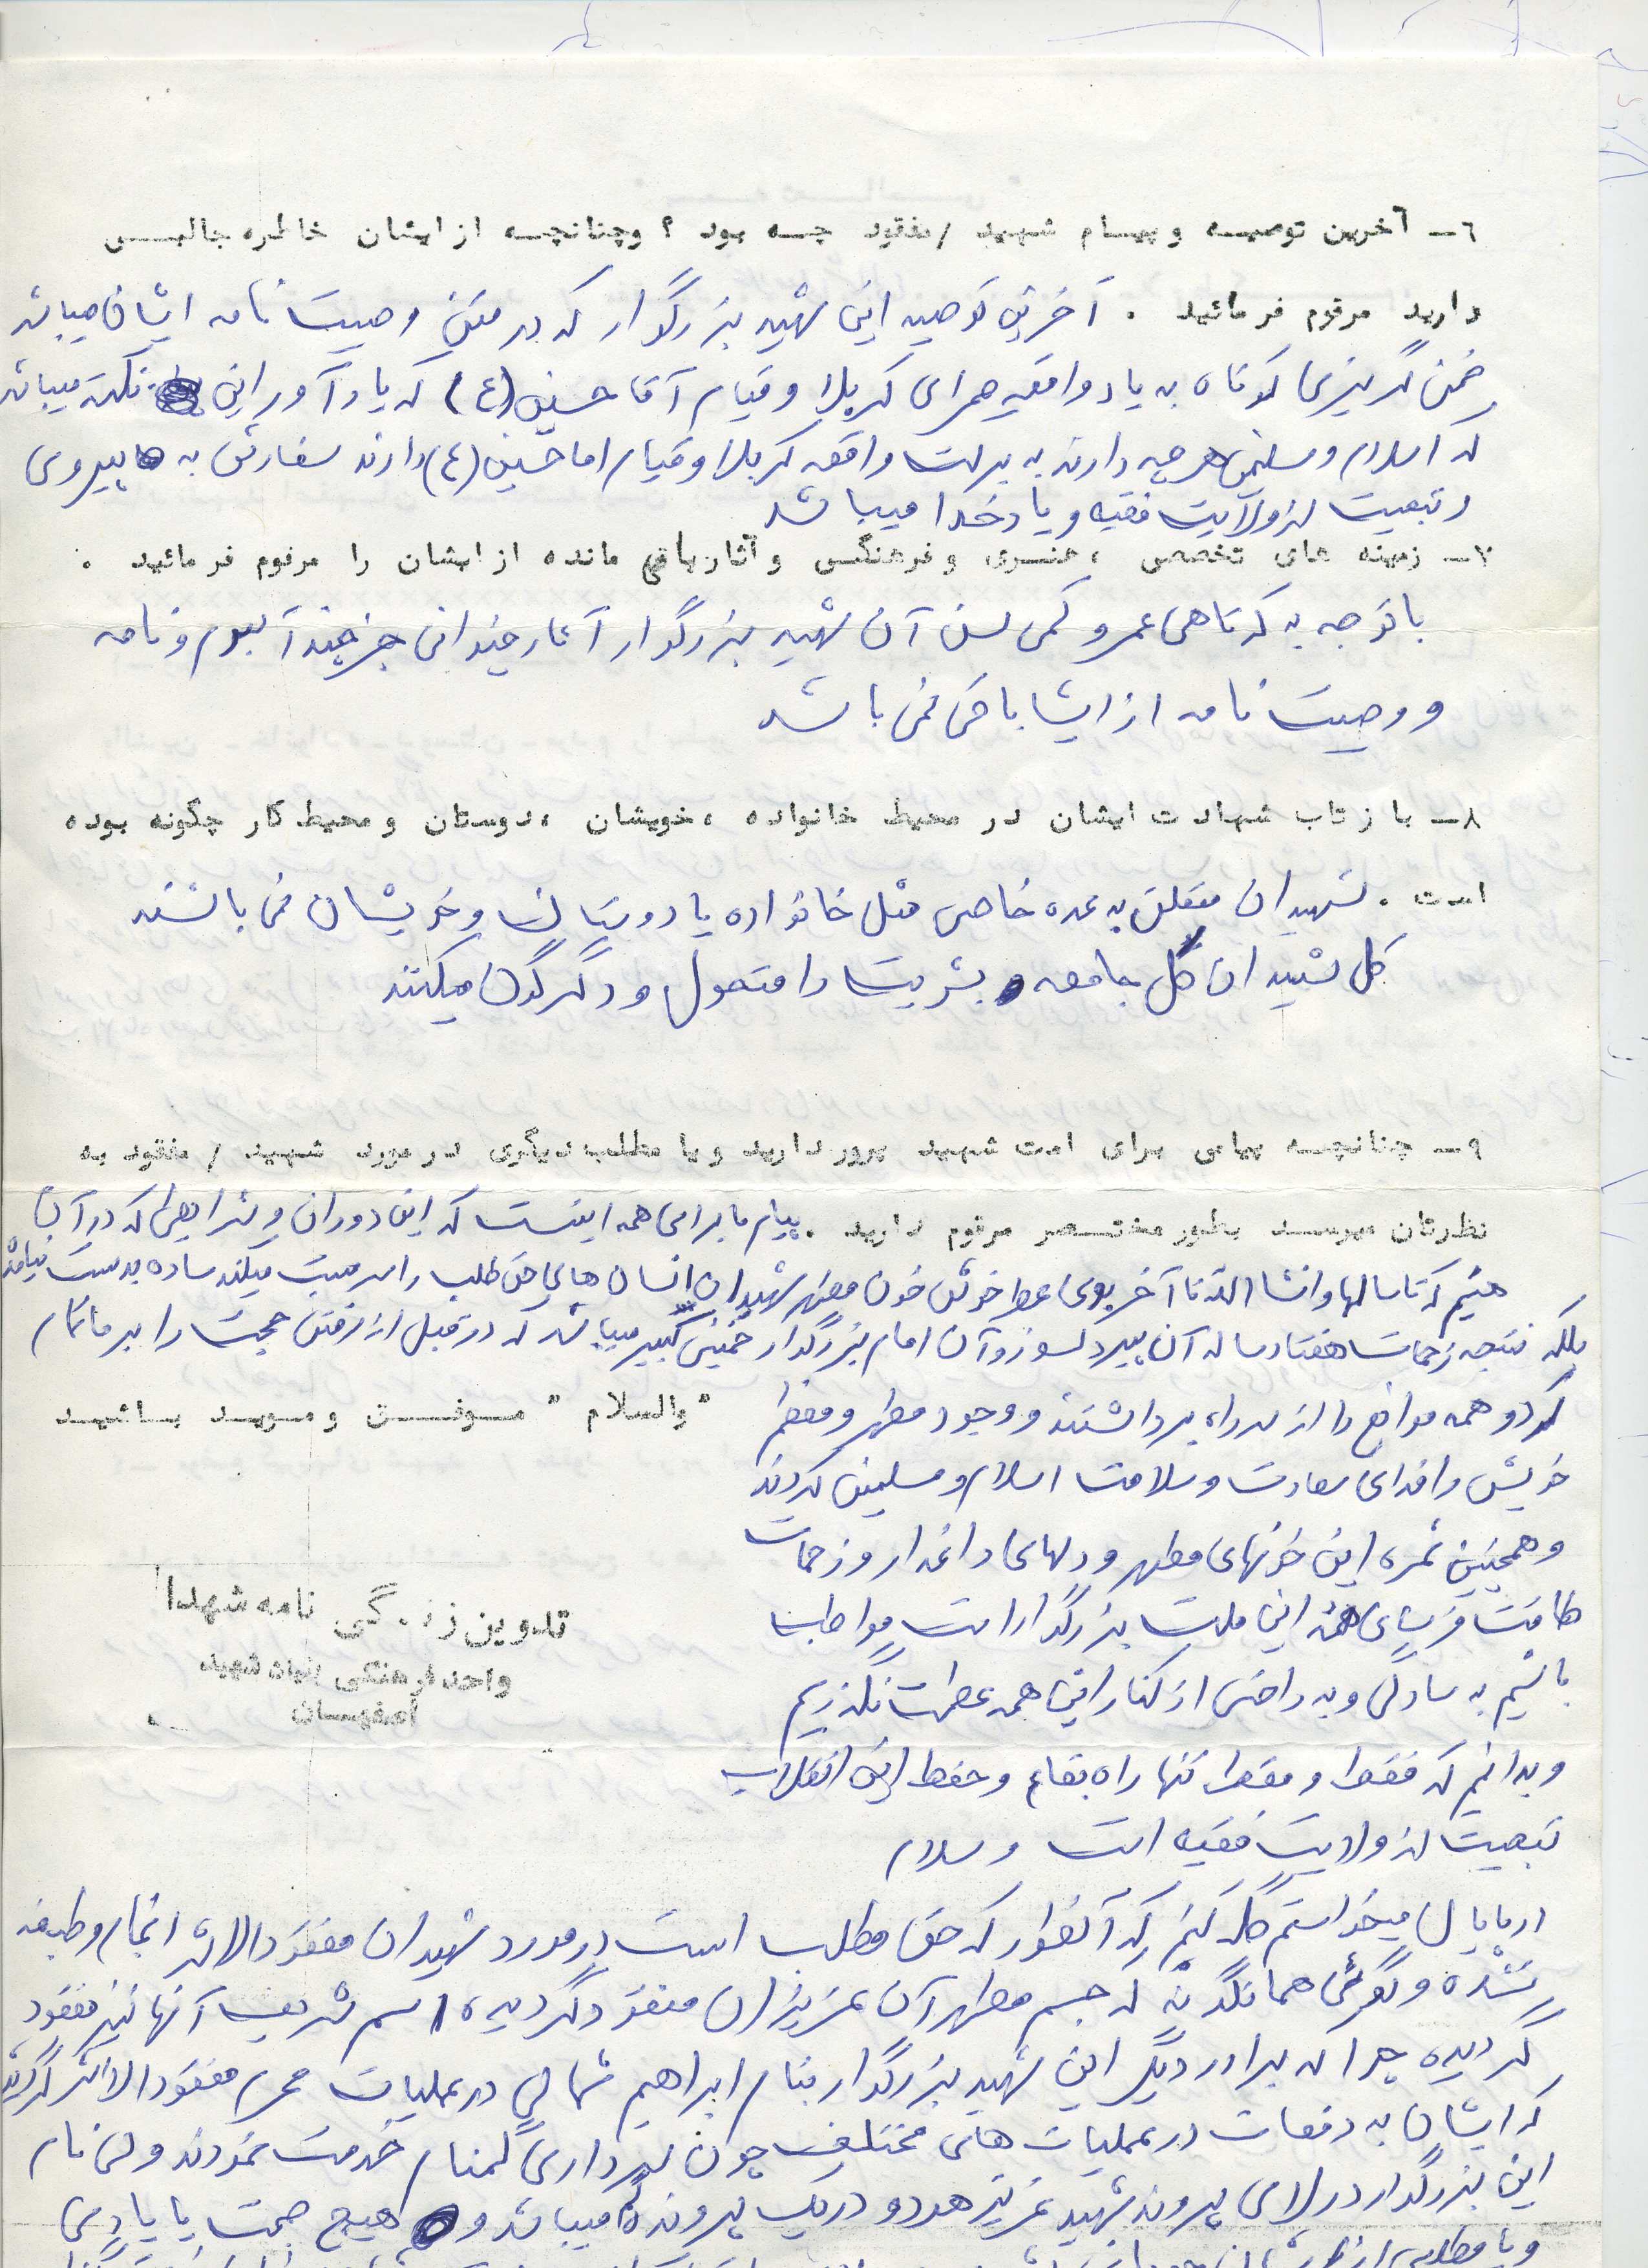 ٦ــ آخرین توصیـه و پیـام شهیـد /مفقود چـه بود ؟ وچنانچـه از ایشان خاطره جالبـی
دارید مرقوم فرمائید . آخرین توصیه این شهید بزرگوار که در متن وصیت نامه ایشان میباشد
ضمن گریزی کوتاه به یاد واقعه صحرای کربلا و قیام آقا حسین (ع) که یادآور این نکته میباشد
که اسلام و مسلمین هر چه دارند به برکت واقعه کربلا و قیام اما حسین (ع) دارند سفارش به پیروی
و تبعیت از ولایت فقیه و یاد خدا میباشد
٧ــ زمینه های تخصصی ، هنـری و فرهنگـی و آثارباقی مانده از ایشان را مرقوم فرمائید .
با توجه به کوتاهی عمر و کمی سن آن شهید بزرگوار آثار چندانی جز چند آلبوم و نامه
و وصیت نامه از ایشا باقی نمی باشد
٨ــ بازتاب شهادت ایشان در محیط خانواده ، خویشان ، دوستان و محیط کار چگونه بوده
است . شهیدان متعلق به عده خاصی مثل خانواده یا دوستان و خویشان نمی باشند
کل شهیدان کل جامعه بشریت را متحول و دگرگون میکنند
٩ــ چنانچـه پیامی برای امت شهید پرور دارید و یا مطلب دیگری در مورد شهید / مفقود به
نظرتان میرسـد بطور مختـصر مرقوم دارید . پیام ما برای همه اینست که این دوران و شرایطی که در آن
هستیم که تا سالها و انشا الله تا آخر بوی عطر خوش خون مطهر شهیدان انسان های حق طلب را سرمست میکند ساده بدست نیامده
بلکه نتیجه زحمات هفتاد ساله آن پیر دلسوز و آن امام بزرگوار خمینی کبیر میباشد که در قبل از رفتن حجت را بر ما تمام
کرد و همه موانع را از سر راه برداشتند و وجود مطهر و معظم
" والسلام " مـوفـق و مـویـد بـاشیـد
خویش را فدای سعادت و سلامت اسلام و مسلمین کردند
و همچنین ثمره این خونهای مطهر و دلهای داغدار و زحمات
طاقت فرسای همه این ملت بزرگوار است مواظب
باشیم به سادگی و به راحتی از کنار این همه عظمت نگذریم
و بدانیم که فقط و فقط تنها راه بقاء و حفظ این انقلاب
تبعیت از ولایت فقیه است و سلام
تدوین زندگی نامه شهدا
واحد فرهنگی بنیاد شهید
اصفهـان
در پایان میخواستم گله کنم که آنطور که حق مطلب است در مورد شهیدان مفقودالاثر انجام وظیفه
نشده و گوئی همانگونه که جسم مطهر آن عزیزان مفقود گردیده اسم شریف آنها نیز مفقود
گردیده چرا که برادر دیگر این شهید بزرگوار بنام ابراهیم شمالی در عملیات محرم مفقودالاثر گردید
که ایشان به دفعات در عملیات های مختلف چون سرداری گمنام خدمت نمودند ولی نام
این بزرگوار در لای پرونده شهید عزیز هر دو در یک پرونده میباشد و هیچ صحبت یا یادی
و یا مطلبی از